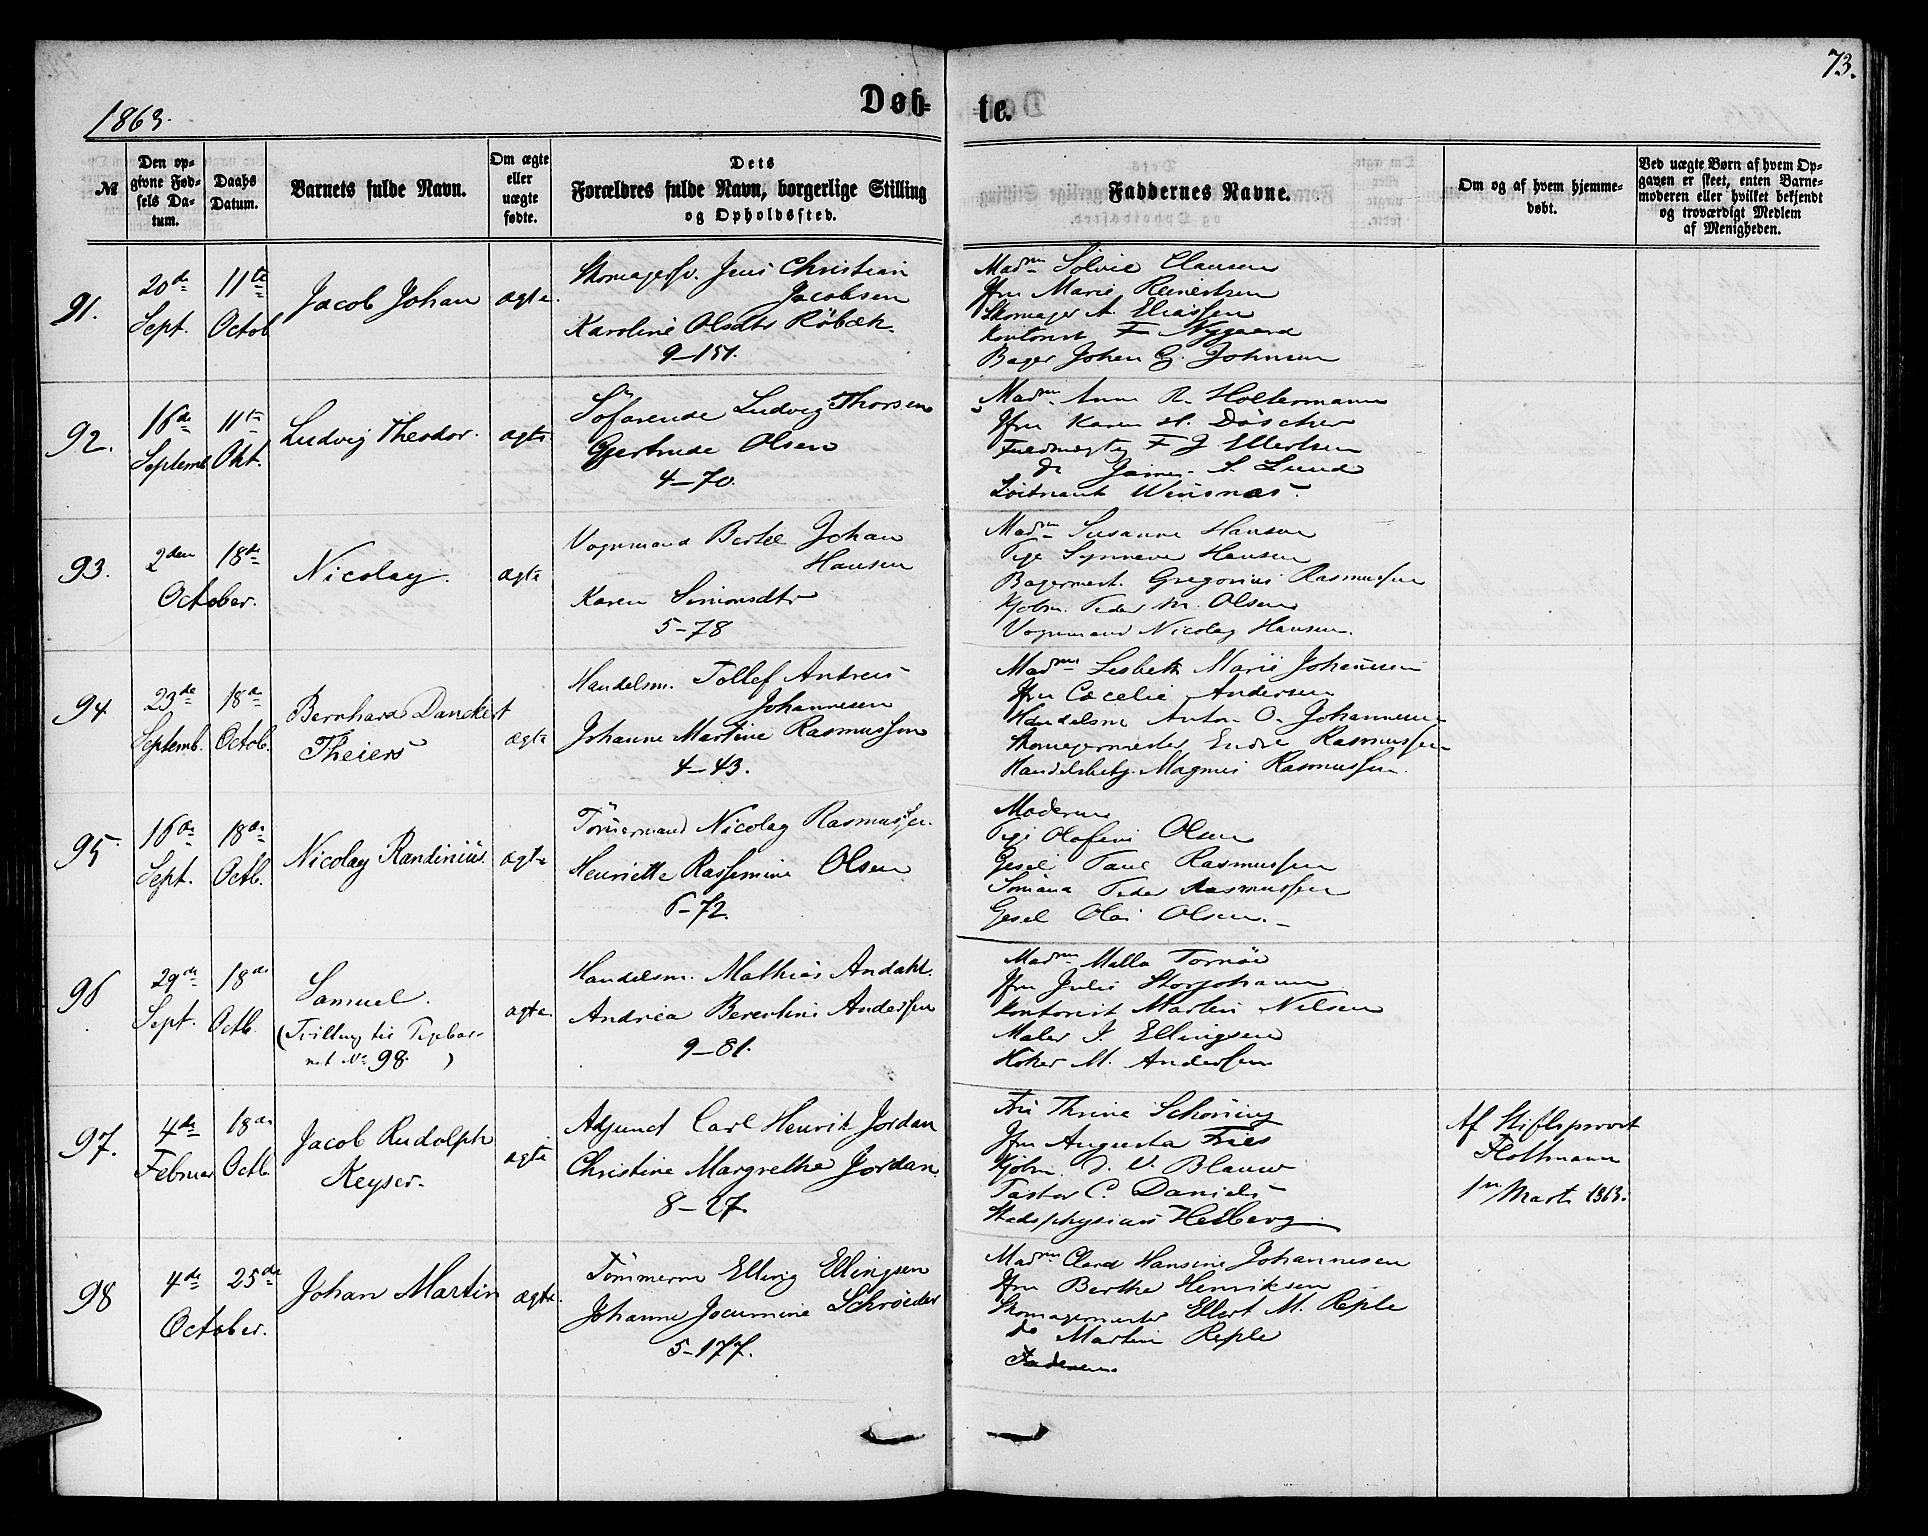 73.
1863.
Døb-
te.
№
Den op-
givne Fød-
sels Da-
tum.
Daabs
Datum.
Barnets fulde Navn.
Om ægte
eller
uægte
fødte.
Dets
Forældres fulde Navn, borgerlige Stilling
og Opholdssted.
Faddernes Navne.
Om og af hvem hjemme-
døbt.
Ved uægte Børn af hvem Op-
gaven er skeet, enten Barne-
moderen eller hvilket bekjendt
og troværdigt Medlem
af Menigheden.
91.
20de
Sept.
11te
Octob
Jacob Johan
ægte.
Skomagersv. Jens Christian
Jacobsen
Karoline Olsdtr Röbæk.
9-151.
Madm Solvie Clausen
Jfru Marie Reinertsen
Skomager A. Eliassen
Kontorist F Nygaard
Bager Johan G. Johnsen
92.
16de
Septemb
11te
Okt.
Ludvig Theodor.
ægte.
Söfarende Ludvig Thorsen
Gjertrude Olsen
4-70.
Madm Anna R. Holtermann
Jfru Karen H. Döscher
Fuldmægtig F J Ellertsen
do James S. Lund
Löitnant Winsnæs.
93.
2den
18de
October.
Nicolay.
ægte
Vognmand Bertel Johan
Hansen
Karen Simonsdtr
5-78
Madm Susanne Hansen
Pige Synneve Hansen
Bagermest. Gregorius Rasmussen
Kjöbm. Peder M. Olsen
Vognmand Nicolay Hansen.
94
23de
Septemb.
18de
Octob.
Bernhard Danckert
Theiers
ægte
Handelsm. Tollef Andreas
Johannesen
Johanne Martine Rasmussen
4-43.
Madm Lisbeth Marie Johannesen
Jfru Cæcelie Andersen
Handelsm Anton O. Johannesen
Skomagermester Endre Rasmussen
Handelsbetj. Magnus Rasmussen.
95
16de
Sept.
18de
Octb.
Nicolay Randinius.
ægte
Tömmermand Nicolay Rasmussen.
Henriette Rassemine Olsen
6-72.
Moderen
Pige Olafine Olsen
Gesel Paul Rasmussen
Sömand Peder Rasmussen
Gesel Olai Olsen.
96
29de
Sept.
18de
Octb.
Samuel.
(Tvilling til Pigebar-
net No 98. )
ægte.
Handelsm. Mathias Andahl.
Andrea Berentine Anderssen
9-81.
Madm Malla Tornöe
Jfru Julie Storjohann
Kontorist Martin Nilsen
Maler J. Ellingsen
Höker M. Anderssen
97.
4de
Februar
18de
Octb.
Jacob Rudolph
Keyser.
ægte
Adjunct Carl Henrik Jordan
Christine Margrethe Jordan.
8-27
Fru Thrine Schöning
Jfru Augusta Fries
Kjöbm. D. V. Blauw
Pastor C. Daniels
Stadsphysicus Heiberg
Af Stiftsprovst
Flottmann
1ste Marts 1863.
98
4de
25de
October.
Johan Martin
ægte.
Tömmerm Elling Ellingsen
Johanne Jocumine Schröeder
5-177.
Madm Clara Hansine Johannesen
Jfru Berthe Henriksen
Skomagermester Ellert M. Reple
do Martin Reple
Faderen.